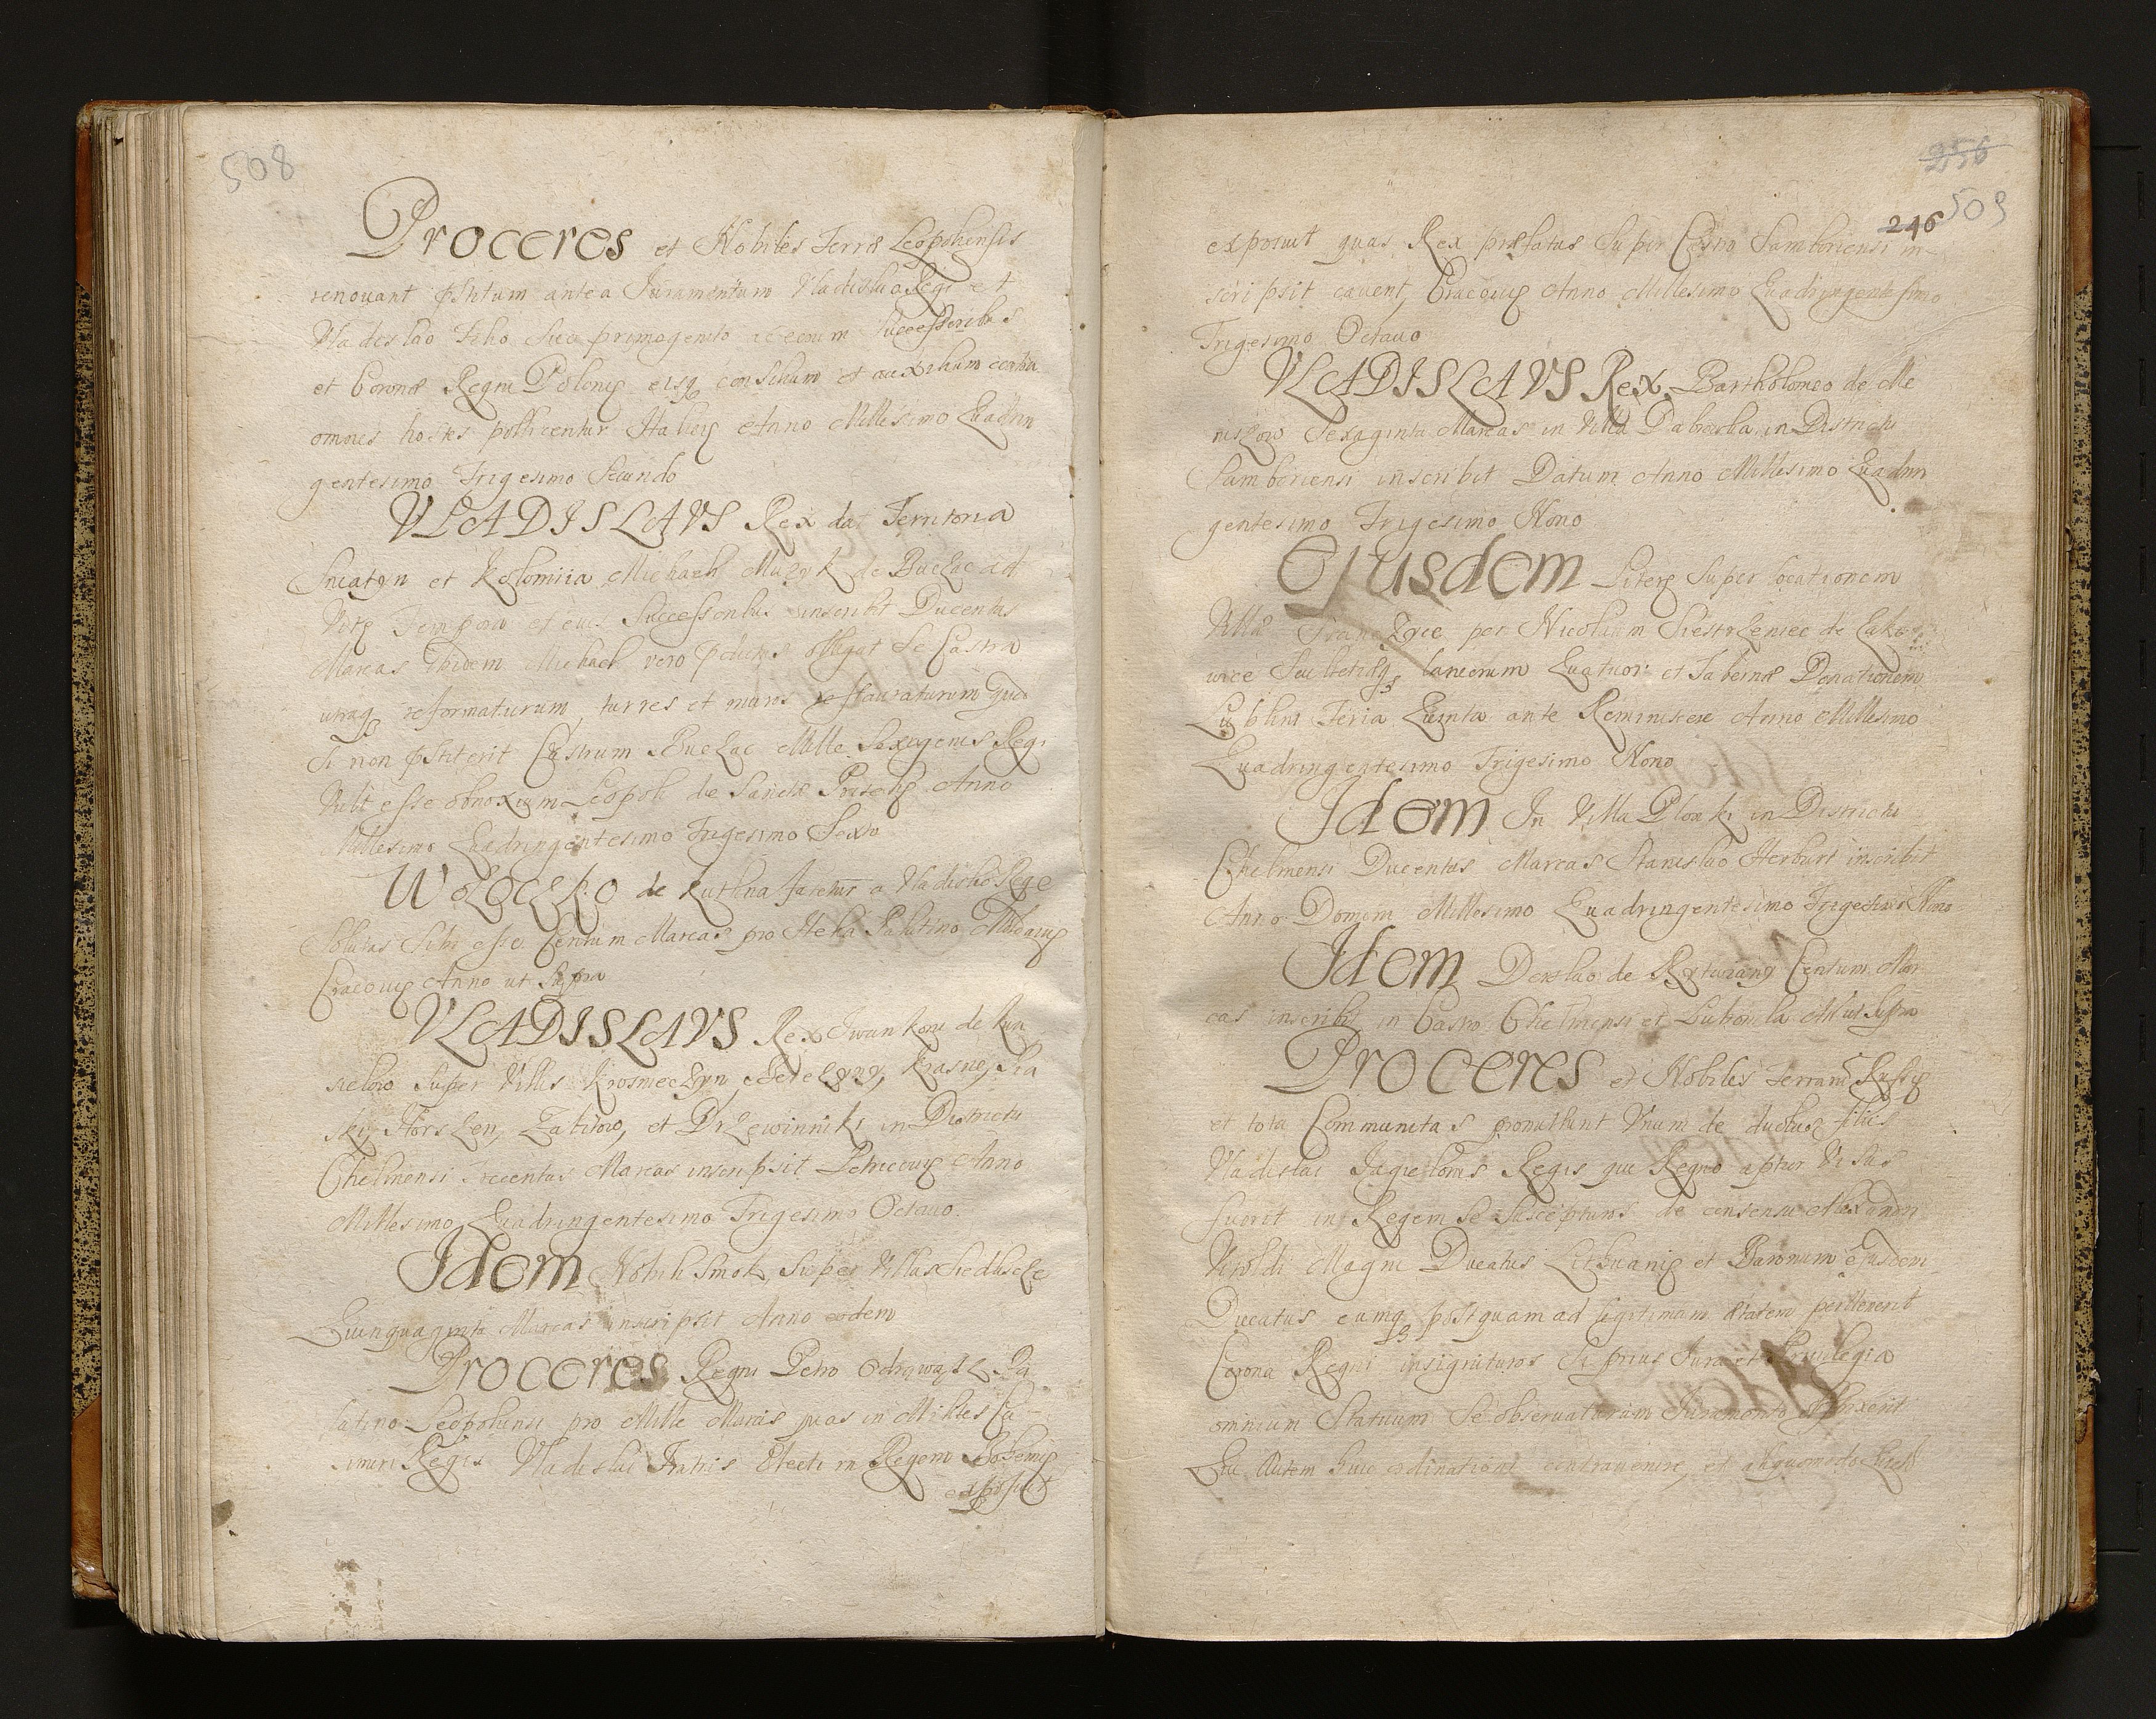 508
Proceres et Nobiles Terræ Leopoliensis
renouant pstitum antea Juramentum Vladislao Regi et
Vladislao Filio suo primogenito ac eorum successoribus
et Coronæ Regni Polonię eisq consilium et auxilium contra
omnes hostes pollicentur Halicię Anno Millesimo Quadrin
gentesimo Trigesimo Secundo
VLADISLAVS Rex dat Territoria
Sniatyn et Kolomiia Michaeli Muzyk de Buczac ad
Vitę Tempora et eius Successoribus inscribit Ducentas
Marcas Ibidem Michael vero obligat Se Castra
utraq reformaturum, turres et muros restauraturum quod
Si non pstiterit Castrum Buczac Mille Sexagenis Regi
Vult esse obnoxium Leopoli die Sanctæ Priscę Anno
Millesimo Quadringentesimo Trigesimo Sexto
WOLOCZKO de Kuthna fatetur a Vladislao Rege
Solutas Sibi esse Centum Marcas pro Helia Palatino Moldauię
Cracouię Anno ut Supra
VLADISLAVS Rex Jwankoni de
super Villis Krosniczyn, Krasne,
et Drzewinniki in Districtu
Chelmensi Trecentas Marcas inscripsit Petricouię Anno
Millesimo Quadringentesimo Trigesimo Octauo.
Idem Nobili Smok, Super Villa Siedliscze
Quinquaginta Marcas inscripsit Anno eodem
Proceres Regni Petro Odrowąsz Pa
latino Leopoliensi pro Mille Marcis quas in Milites Ca
simiri Regis Vladislai Fratris Electi in Regem Bohemię
exposuit
256
509
246
exposuit quas Rex præfatus Super Castro Samboriensi in-
scripsit cauent, Cracouię Anno Millesimo Quadringentesimo
Trigesimo Octauo
VLADISLAVS Rex Bartholomeo de Me
Sexaginta Marcas in Villa in Districtu
Samboriensi inscribit Datum Anno Millesimo Quadrin
gentesimo Trigesimo Nono
Ejusdem Literę Super locationem
Villæ per Nicolaum Siestrzeniec de
Scultetiæq laneorum Quatuor et Tabernæ Donationem
Lublini Feria Quinta ante Reminiscere Anno Millesimo
Quadringentesimo Trigesimo Nono
Idem In Villa Plonki in Districtu
Chelmensi Ducentas Marcas Stanislao Herburt inscribit
Anno Domini Millesimo Quadringentesimo Trigesimo Nono
Idem Derslao de Rytwiany Centum Mar
cas inscribit in Castro Chelmensi et Lubomla Ut Supra
Proceres et Nobiles Terrarum Russię
et tota Communitas promittunt Vnum de duobus filiis
Vladislai Jagiellonis Regis qui Regno aptior Visus
fuerit in Regem Se Suscepturos de consensu Alexandri
Vitoldi Magni Ducatus Lithuanię et Baronum ejusdem
Ducatus eumq postquam ad legitimam ætatem peruenerit
Corona Regni insignituros Si prius Jura et Priuilegia
omnium Statuum Se obseruaturum Juramento
Qui Autem huic ordinationi contrauenire, et aliquomodo